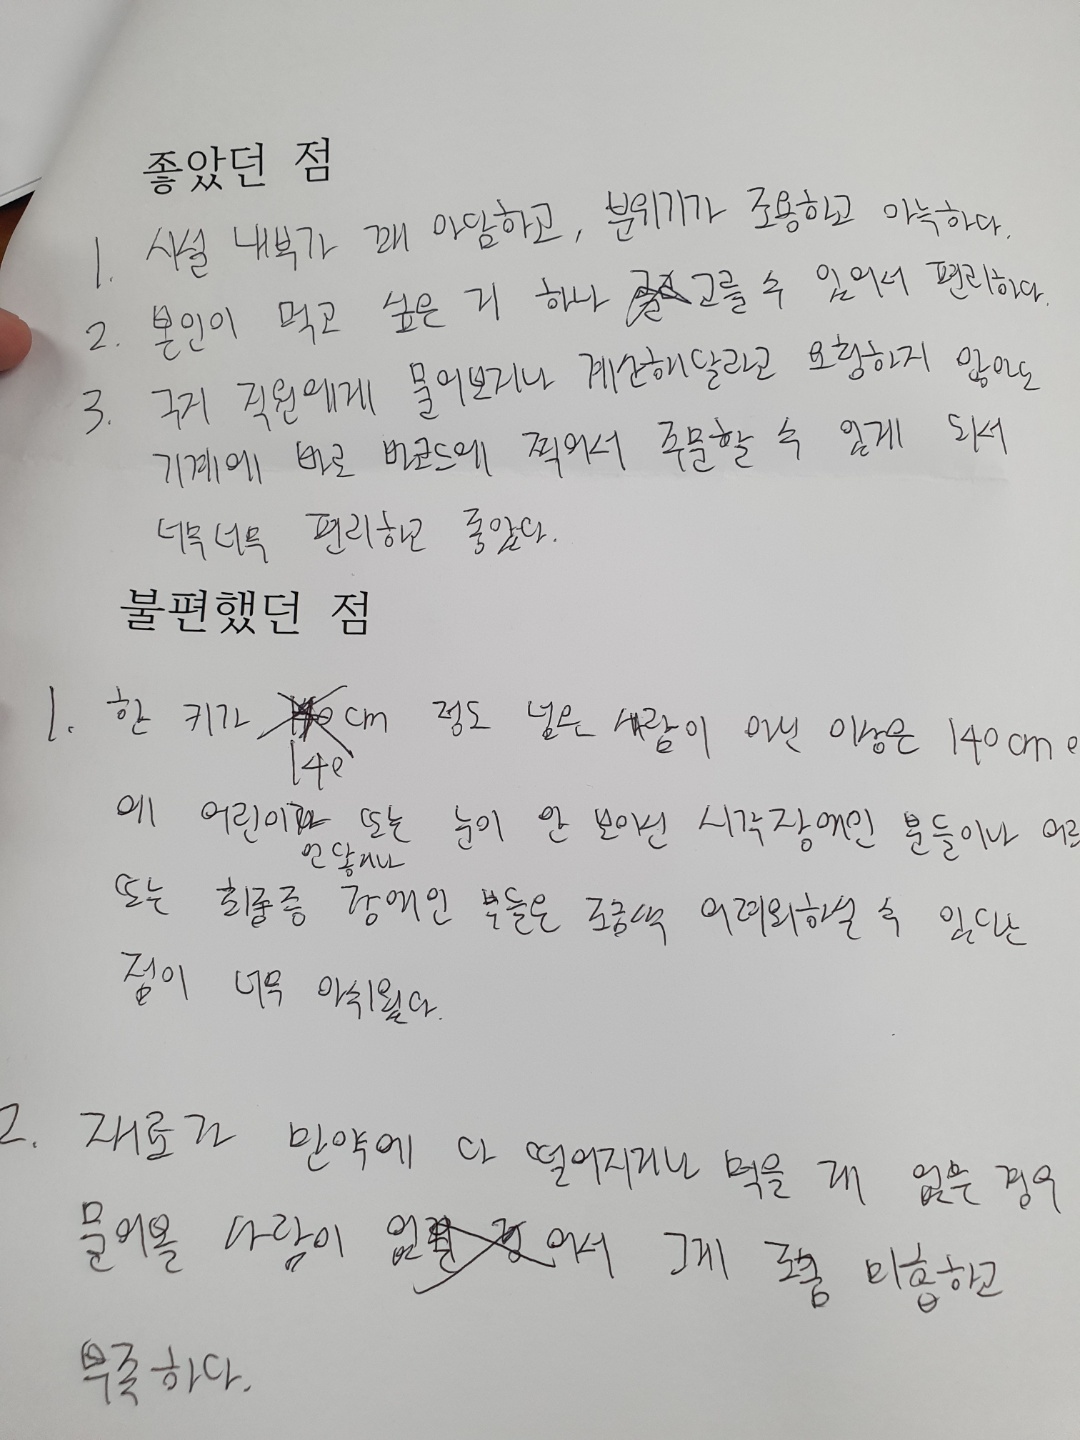 좋았던 점
1. 시설 내부가 꽤 아담하고, 분위기가 조용하고 아늑하다.
2. 본인이 먹고 싶은 거 하나 고를 수 있어서 편리하다.
3. 굳이 직원에게 물어보거나 계산해달라고 요청하지 않아도
기계에 바로 바코드에 찍어서 주문할 수 있게 되서
너무너무 편리하고 좋았다.
불편했던 점
1. 한 키가 140cm 정도 넘은 사람이 아닌 이상은 140cm
에 어린이 또는 눈이 안 보이신 시각장애인 분들이나
안 닿거나
또는 장애인 분들은 조금씩 어려워하실 수 있다는
점이 너무 아쉬웠다.
2. 재료가 만약에 다 떨어지거나 먹을 게 없는 경우
물어볼 사람이 없어서 그게 조금 미흡하고
부족하다.